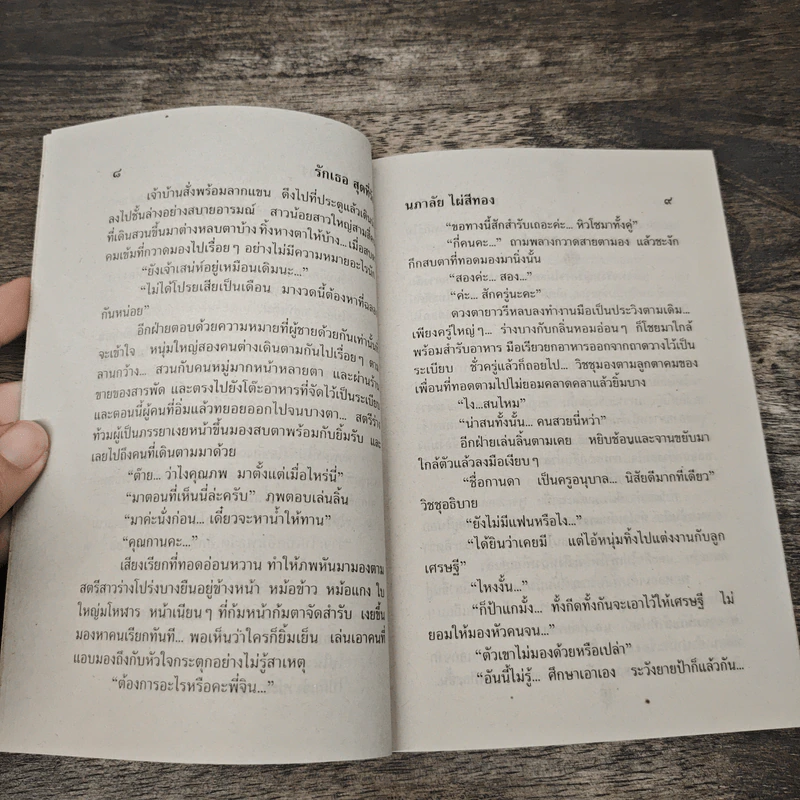 ๘ รักเธอ สุดที่
เจ้าบ้านสั่งพร้อมลากแขน ดึงไปที่ประตูแล้วเดิน
ลงไปชั้นล่างอย่างสบายอารมณ์ สาวน้อยสาวใหญ่สาม
ที่เดินสวนขึ้นมาต่างหลบตาบ้าง ทิ้งหางตาให้บ้าง... เมื่อ
คมเข้มที่กวาดมองไปเรื่อยๆ อย่างไม่มีความหมายอะไร
“ยังเจ้าเสน่ห์อยู่เหมือนเดิมนะ...”
“ไม่ได้โปรยเสียเป็นเดือน มางวดนี้ต้องหาที่
กันหน่อย”
อีกฝ่ายตอบด้วยความหมายที่ผู้ชายด้วยกันเท่านั้น
จะเข้าใจ หนุ่มใหญ่สองคนต่างเดินตามกันไปเรื่อยๆ ตาม
ลานกว้าง... สวนกับคนหมู่มากหน้าหลายตา และผ่านร้าน
ขายของสารพัด และตรงไปยังโต๊ะอาหารที่จัดไว้เป็นระเบียบ
และตอนนี้ผู้คนที่อิ่มแล้วทยอยออกไปจนบางตา... สตรีร่าง
ท้วมผู้เป็นภรรยาเงยหน้าขึ้นมองสบตาพร้อมกับยิ้มรับ และ
เลยไปถึงคนที่เดินตามมาด้วย
“ต๊าย... ว่าไงคุณภพ มาตั้งแต่เมื่อไหร่นี่”
“มาตอนที่เห็นนี่ล่ะครับ” ภพตอบเล่นลิ้น
“มาค่ะนั่งก่อน... เดี๋ยวจะหาน้ำให้ทาน”
“คุณกานคะ...”
เสียงเรียกที่ทอดอ่อนหวาน ทำให้ภพหันมามองตาม
สตรีสาวร่างโปร่งบางยืนอยู่ข้างหน้า หม้อข้าว หม้อแกง ใบ
ใหญ่มโหฬาร หน้าเนียนๆ ที่ก้มหน้าก้มตาจัดสำรับ เงยขึ้น
มองหาคนเรียกทันที... พอเห็นว่าใครก็ยิ้มเย็น เล่นเอาคนที่
แอบมองถึงกับหัวใจกระตุกอย่างไม่รู้สาเหตุ
“ต้องการอะไรหรือคะพี่จิน...”
นภาลัย ไผ่สีทอง ๙
“ขอทางนี้สักสำรับเถอะค่ะ... หิวโซมาทั้งคู่”
“กี่คนคะ...” ถามพลางกวาดสายตามอง แล้วชะงัก
กึกสบตาที่ทอดมองมานิ่งนั้น
“สองค่ะ... สอง...”
“ค่ะ... สักครู่นะคะ”
ดวงตายาวรีหลบลงทำงานมือเป็นประวิงตามเดิม...
เพียงครู่ใหญ่ๆ... ร่างบางกับกลิ่นหอมอ่อนๆ ก็โชยมาใกล้
พร้อมสำรับอาหาร มือเรียวยกอาหารออกจากถาดวางไว้เป็น
ระเบียบ ชั่วครู่แล้วก็ถอยไป... วิชชุมองตามลูกตาคมของ
เพื่อนที่ทอดตามไปไม่ยอมคลาดคลาแล้วยิ้มบาง
“ไง...สนไหม”
“น่าสนทั้งนั้น... คนสวยนี่หว่า”
อีกฝ่ายเล่นลิ้นตามเคย หยิบช้อนและจานขยับมา
ใกล้ตัวแล้วลงมือเงียบๆ
“ชื่อกานดา เป็นครูอนุบาล... นิสัยดีมากทีเดียว”
วิชชุอธิบาย
“ยังไม่มีแฟนหรือไง...”
“ได้ยินว่าเคยมี แต่ไอ้หนุ่มทิ้งไปแต่งงานกับลูก
เศรษฐี”
“ไหงงั้น...”
“ก็ป้าแกมั้ง... ทั้งกีดทั้งกันจะเอาไว้ให้เศรษฐี ไม่
ยอมให้มองหัวคนจน...”
“ตัวเขาไม่มองด้วยหรือเปล่า”
“อันนี้ไม่รู้... ศึกษาเอาเอง ระวังยายป้าก็แล้วกัน...